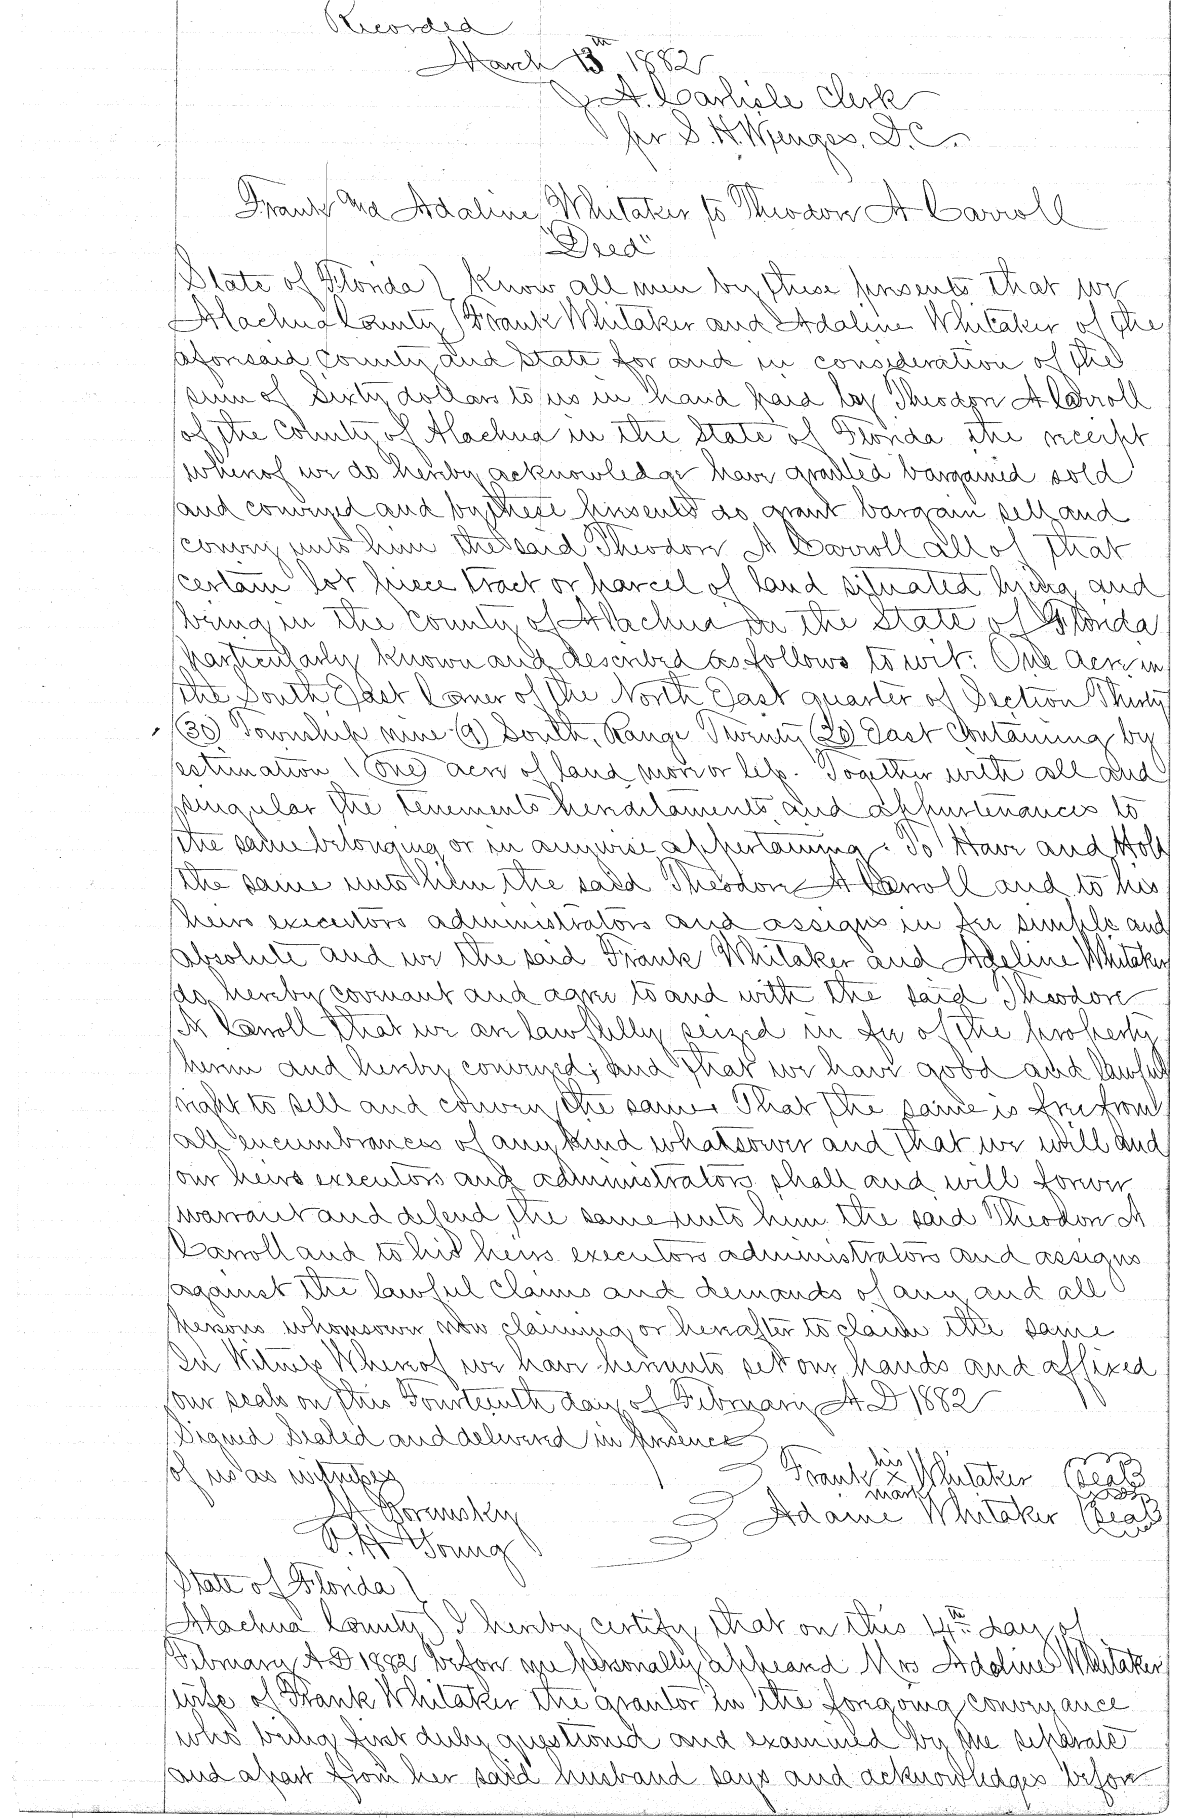 Recorded
March 13th 1882
J. A. Carlisle Clerk
per S. H. Wienges. D.C.
Frank and Adaline Whitaker to Theodore A Carroll
"Deed"
State of Florida } Know all men by these presents that we
Alachua County } Frank Whitaker and Adaline Whitaker of the
aforesaid County and State for and in consideration of the
sum of Sixty dollars to us in hand paid by Theodore A Carroll
of the County of Alachua in the State of Florida the receipt
whereof we do hereby acknowledge have granted bargained sold
and conveyed and by these presents do grant bargain sell and
convey unto him the said Theodore A Carroll all of that
certain lot piece tract or parcel of land situated lying and
being in the County of Alachua in the State of Florida
particularly known and described as follows to wit: One acre in
the South East Corner of the North East quarter of Section Thirty
(30) Township nine (9) South, Range Twenty (20) East Containing by
estimation 1 (one) acre of land more or less. Together with all and
singular the tenements hereditaments and appurtenances to
the same belonging or in anywise appertaining. To Have and Hold
the same unto him the said Theodore A Carroll and to his
heirs executors administrators and assigns in fee simple and
absolute and we the said Frank Whitaker and Adeline Whitaker
do hereby covenant and agree to and with the said Theodore
A Carroll that we are lawfully seized in fee of the property
herein and hereby conveyed; and that we have good and lawful
right to sell and convey the same. That the same is free from
all encumbrances of any kind whatsoever and that we will and
our heirs executors and administrators shall and will forever
warrant and defend the same unto him the said Theodore A
Carroll and to his heirs executors administrators and assigns
against the lawful claims and demands of any and all
persons whomsoever now claiming or hereafter to claim the same
In Witness Whereof we have hereunto set our hands and affixed
our seals on this Fourteenth day of February A D 1882
Signed Sealed and delivered in presence
of us as witnesses
Frank his x mark Whitaker (Seal)
Adaine Whitaker (Seal)
P. H Young
State of Florida }
Alachua County } I hereby certify that on this 14th day of
February A D 1882 before me personally appeard Mrs Adaline Whitaker
wife of Frank Whitaker the grantor in the foregoing conveyance
who being first duly questioned and examined by me separate
and apart from her said husband says and acknowledges before